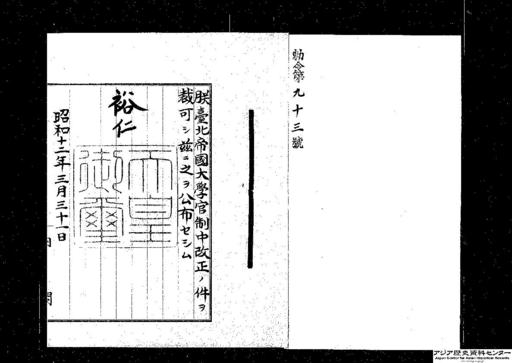 勅令第九十三號
朕臺北帝國大學官制中改正ノ件ヲ
裁可シ茲ニ之ヲ公布セシム
裕仁
天皇御璽
昭和十二年三月三十一日
アジア歴史資料センター
Japan Center for Asian Historical Records